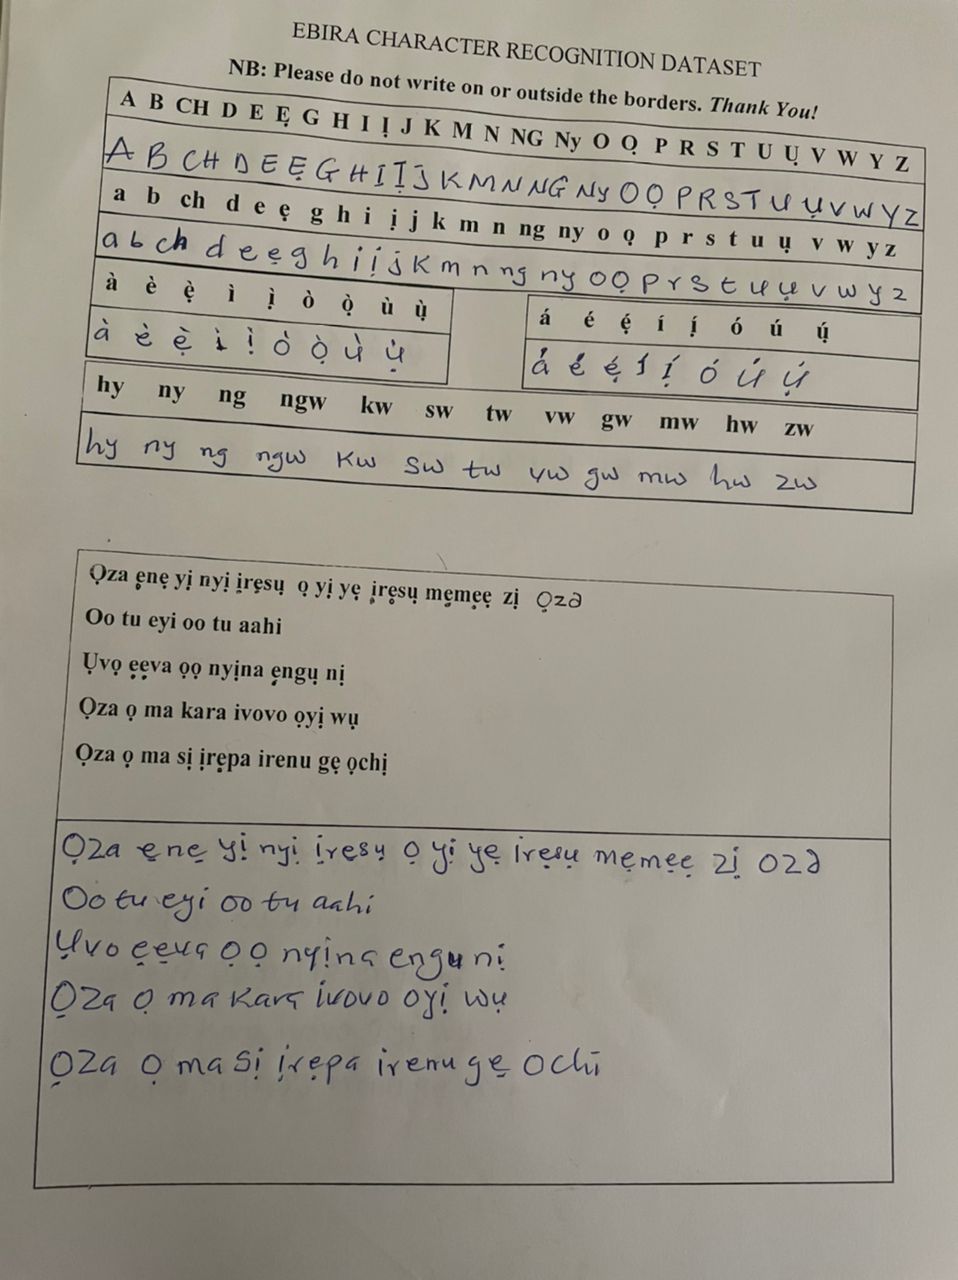 EBIRA CHARACTER RECOGNITION DATASET
NB: Please do not write on or outside the borders. Thank You!
A B CH D E Ẹ G H I Ị J K M N NG Ny O Ọ P R S T U Ụ V W Y Z
A B CH D E Ẹ G H I Ị J K M N NG Ny O Ọ P R S T U Ụ V W Y Z
a b ch d e ẹ g h i ị j k m n ng ny o ọ p r s t u ụ v w y z
a b ch d e ẹ g h i ị j k m n ng ny o ọ p r s t u ụ v w y z
à è ẹ̀ ì ị̀ ò ọ̀ ù ụ̀
à è ẹ̀ ì ị̀ ò ọ̀ ù ụ̀
á é ẹ́ í ị́ ó ú ụ́
á é ẹ́ í ị́ ó ú ụ́
hy ny ng ngw kw sw tw vw gw mw hw zw
hy ny ng ngw kw sw tw vw gw mw hw zw
Ọza ẹnẹ yị nyị ịrẹsụ ọ yị yẹ ịrẹsụ mẹmẹẹ zị ọza
Oo tu eyi oo tu aahi
Ụvọ ẹẹva ọọ nyịna ẹngụ nị
Ọza ọ ma kara ivovo ọyị wụ
Ọza ọ ma sị ịrẹpa irenu gẹ ọchị
Ọza ẹnẹ yị nyị ịrẹsụ ọ yị yẹ irẹsụ mẹmẹẹ zị oza
Oo tu eyi oo tu aahi
Ụvo ẹẹva ọọ nyịna engu nị
Ọza ọ ma kara ivovo oyị wụ
Ọza ọ ma sị ịrẹpa irenu gẹ ochi